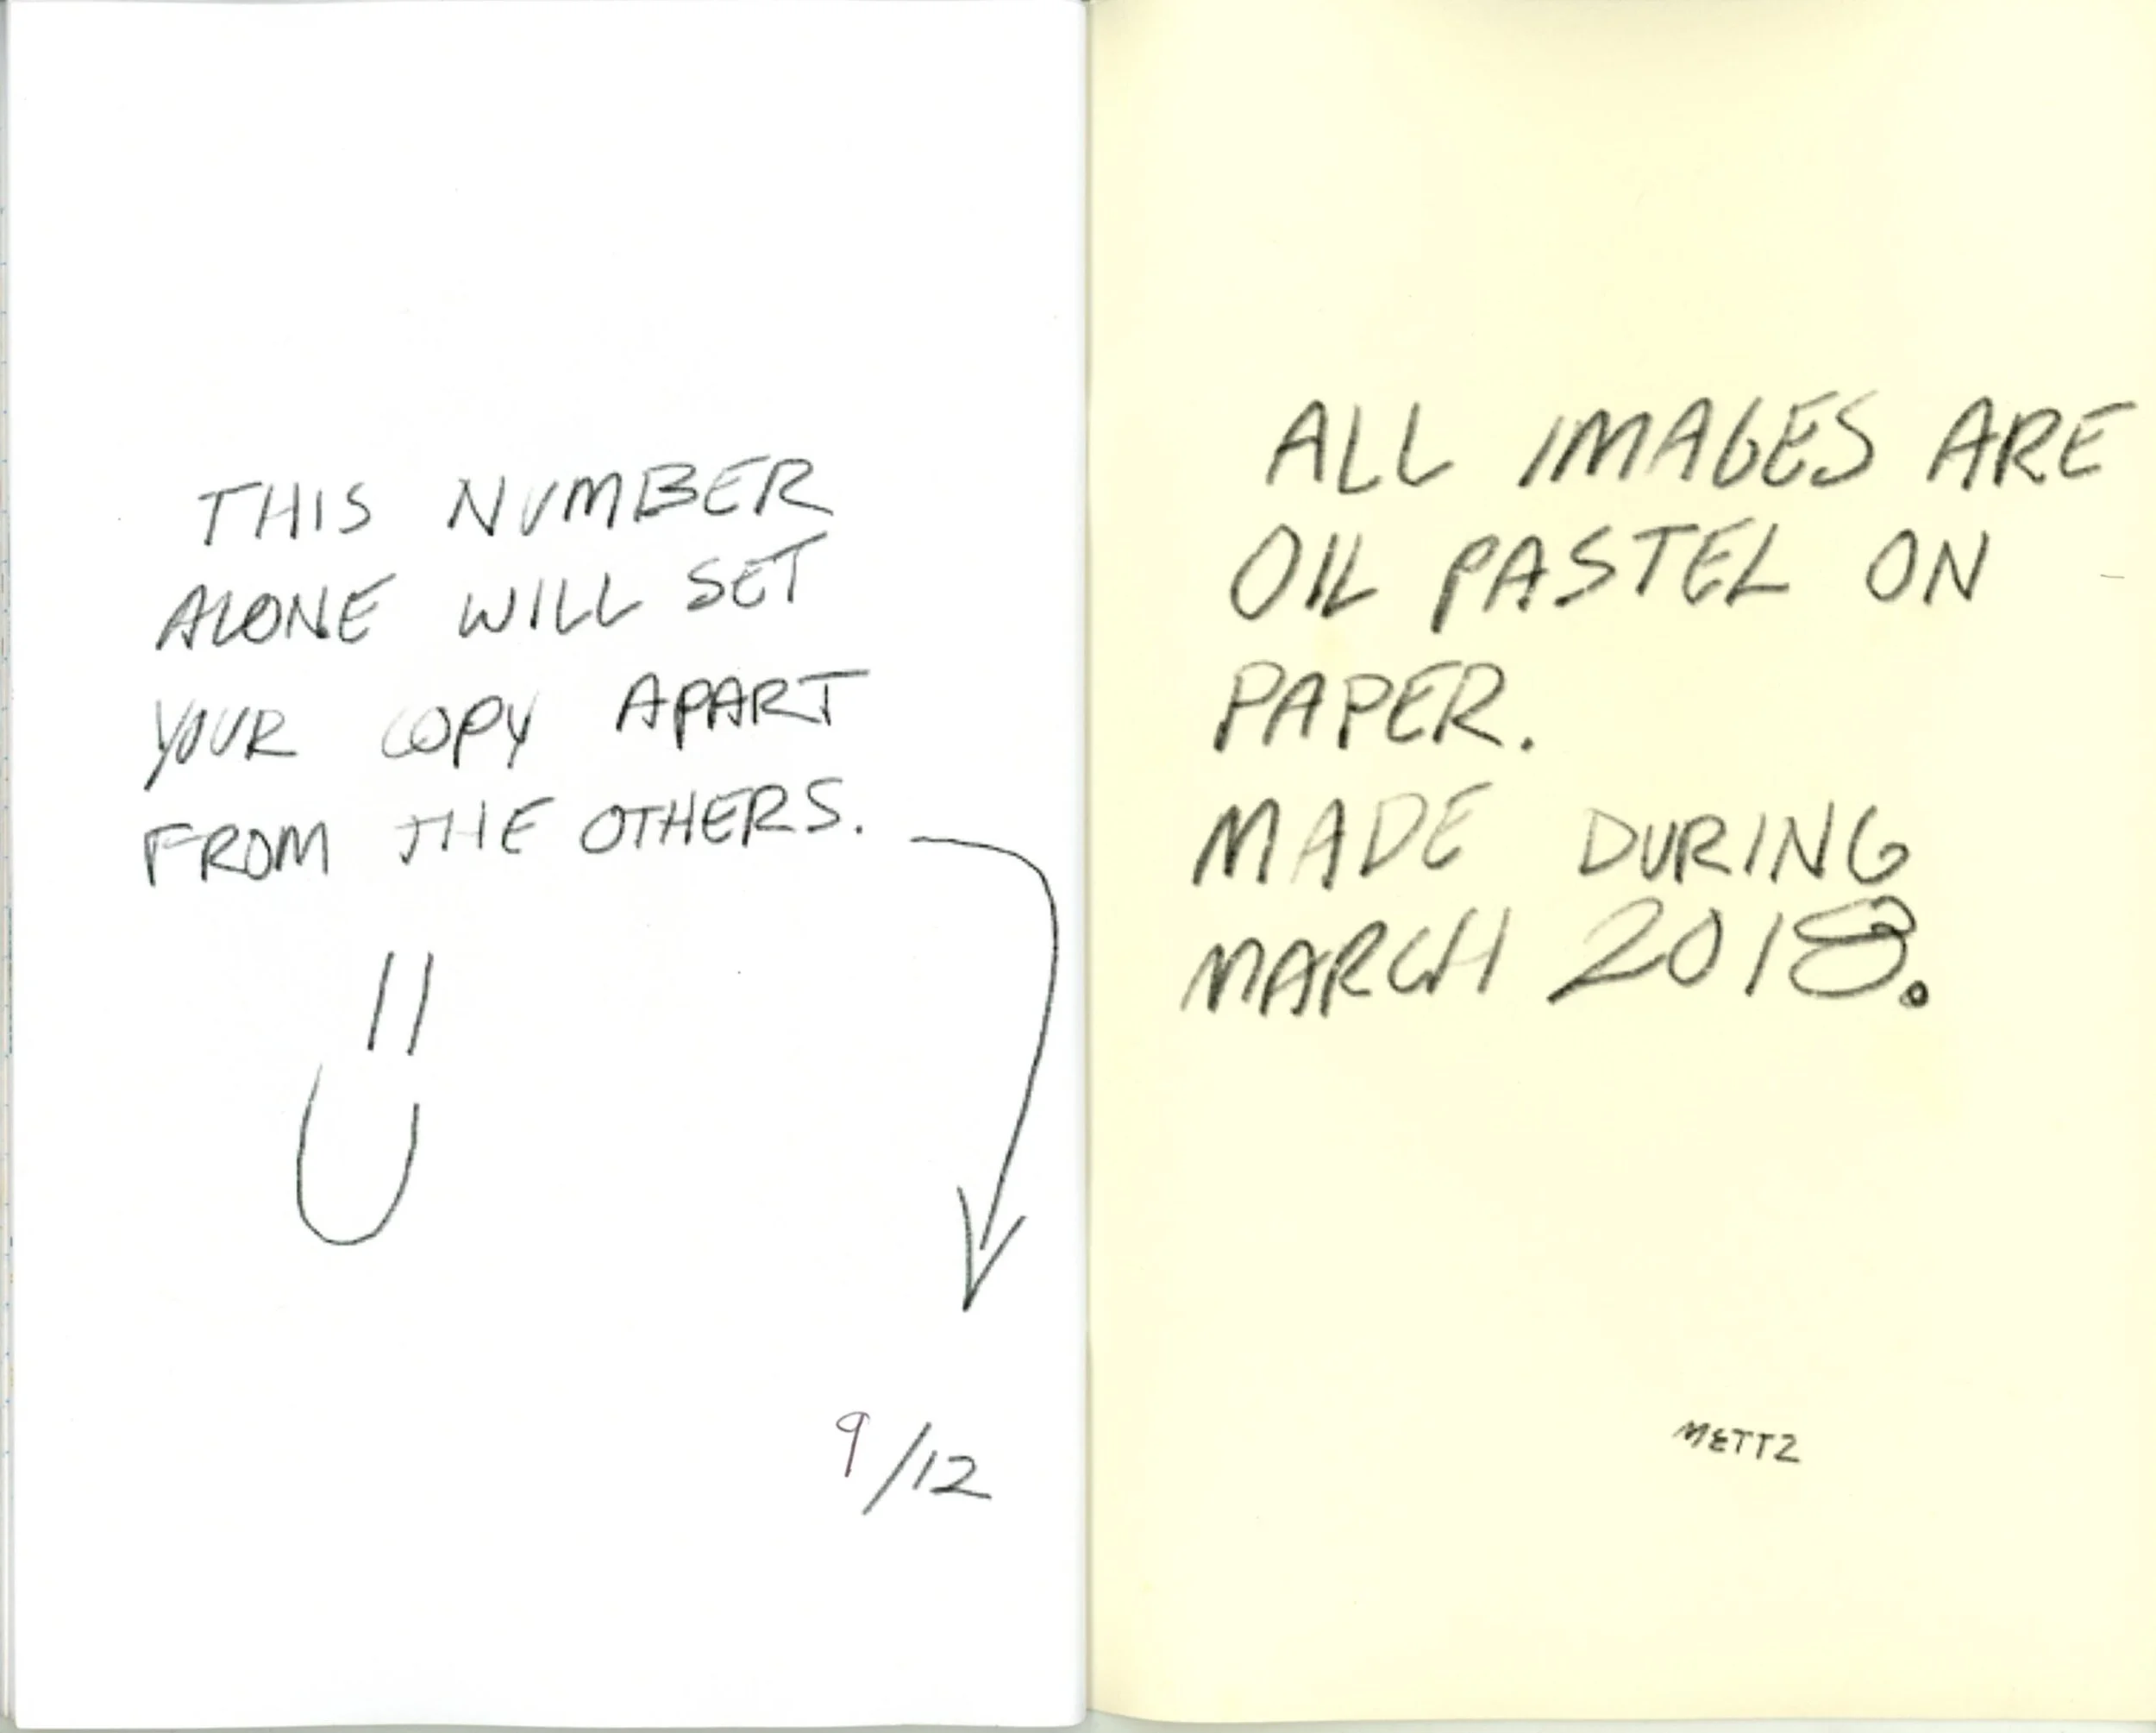 THIS NUMBER
ALONE WILL SET
YOUR COPY APART
FROM THE OTHERS.
9/12
ALL IMAGES ARE
OIL PASTEL ON
PAPER.
MADE DURING
MARCH 2018.
METTZ